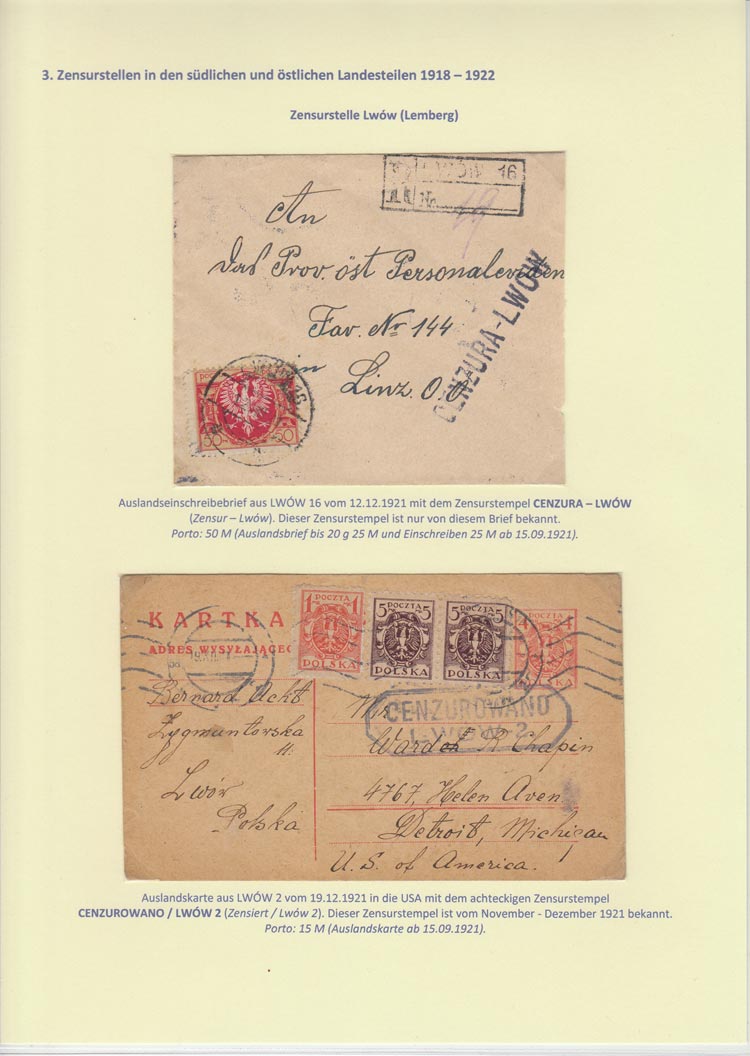 3. Zensurstellen in den südlichen und östlichen Landesteilen 1918 – 1922
Zensurstelle Lwów (Lemberg)
LWÓW 16
Nr.
An
das Prov. öst Personalevidenz
Fav. Nr 144
in
Linz. O.Ö
CENZURA-LWÓW
50 50
Auslandseinschreibebrief aus LWÓW 16 vom 12.12.1921 mit dem Zensurstempel CENZURA – LWÓW
(Zensur – Lwów). Dieser Zensurstempel ist nur von diesem Brief bekannt.
Porto: 50 M (Auslandsbrief bis 20 g 25 M und Einschreiben 25 M ab 15.09.1921).
KARTKA
ADRES WYSYŁAJĄCEG
1 POCZTA 1
POLSKA
5 POCZTA 5
POLSKA
5 POCZTA 5
POLSKA
POLSKA
CENZUROWANO
LWÓW 2
Bernard Ackt
Zygmuntowska
11.
Lwów
Polska
Mr.
Ward R. Chapin
4767, Helen Aven
Detroit, Michigan
U.S. of America.
Auslandskarte aus LWÓW 2 vom 19.12.1921 in die USA mit dem achteckigen Zensurstempel
CENZUROWANO / LWÓW 2 (Zensiert / Lwów 2). Dieser Zensurstempel ist vom November - Dezember 1921 bekannt.
Porto: 15 M (Auslandskarte ab 15.09.1921).